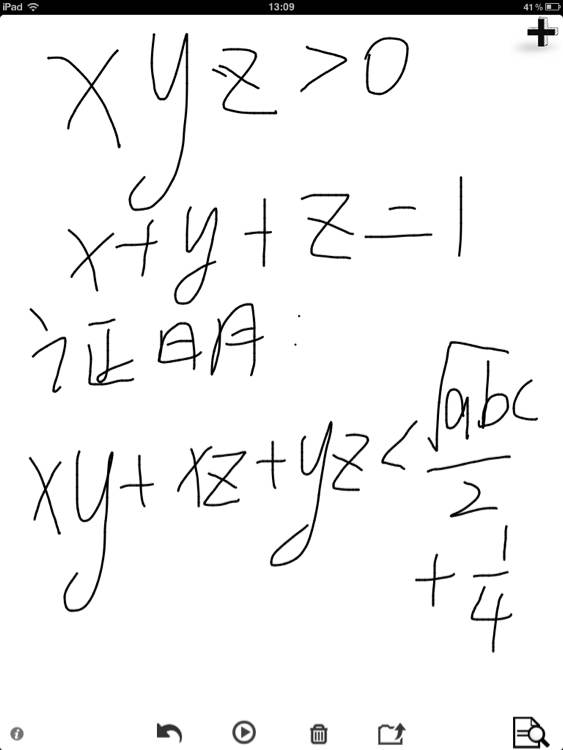 iPad 13:09 41%
xyz>0
x+y+z=1
证明:
xy+xz+yz<√abc/2
+1/4